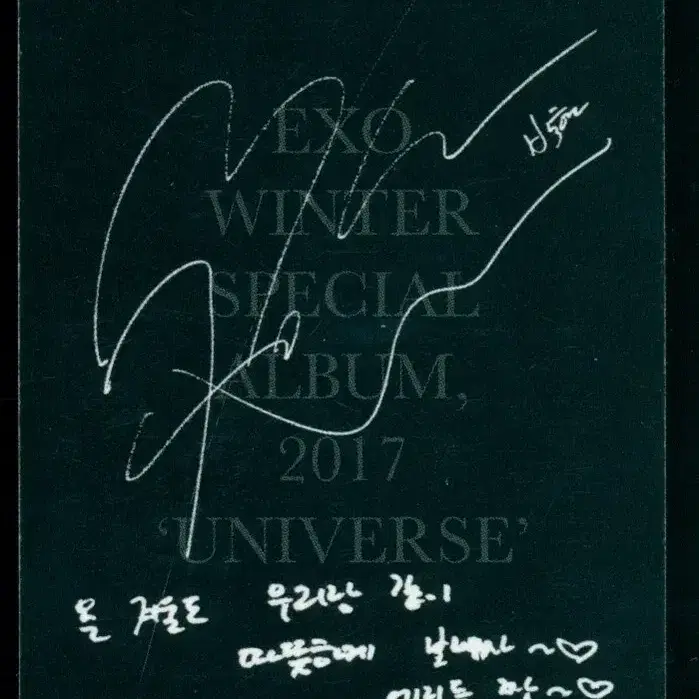 EXO
WINTER
SPECIAL
ALBUM,
2017
'UNIVERSE'
올 겨울도 우리랑 같이
따뜻하게 보내자 ~♡
에리도 ~♡